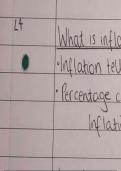 L4
What is infla
• Inflation tell
• Percentage c
Inflati